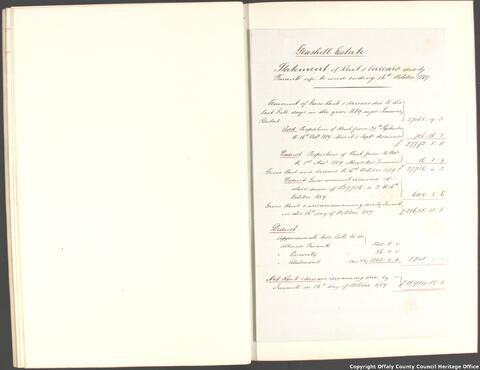 Geashill Estate.
Statement of Rent & Arrears due by
Tenants up to and ending 16th October 1889
Amount of Gross Rent & Arrears due to the
last Gale days in the year 1889 as per
Rental 27065. 9. 3
Add Proportion of Rent from 29th September
to 16th Octr 1889
£ 27772. 5. 11
Deduct Proportion of Rent from
to 1st Novr 1889 16. 1. 9
Gross Rent and Arrears to 16th October 1889 £ 27756. 4. 2
Deduct Gross amount received of
above sum of £27756. 4. 2 to 16th
October 1889
Gross Rent & arrears remaining due by Tenants
on this 16th day of October 1889 £ 21655. 15. 8
Deduct
Approximate Poor Rate to be
allowed Tenants
" County
" Abatement
Net Rent & Arrears remaining due by
Tenants on 16th day of October 1889. £
Copyright Offaly County Council Heritage Office